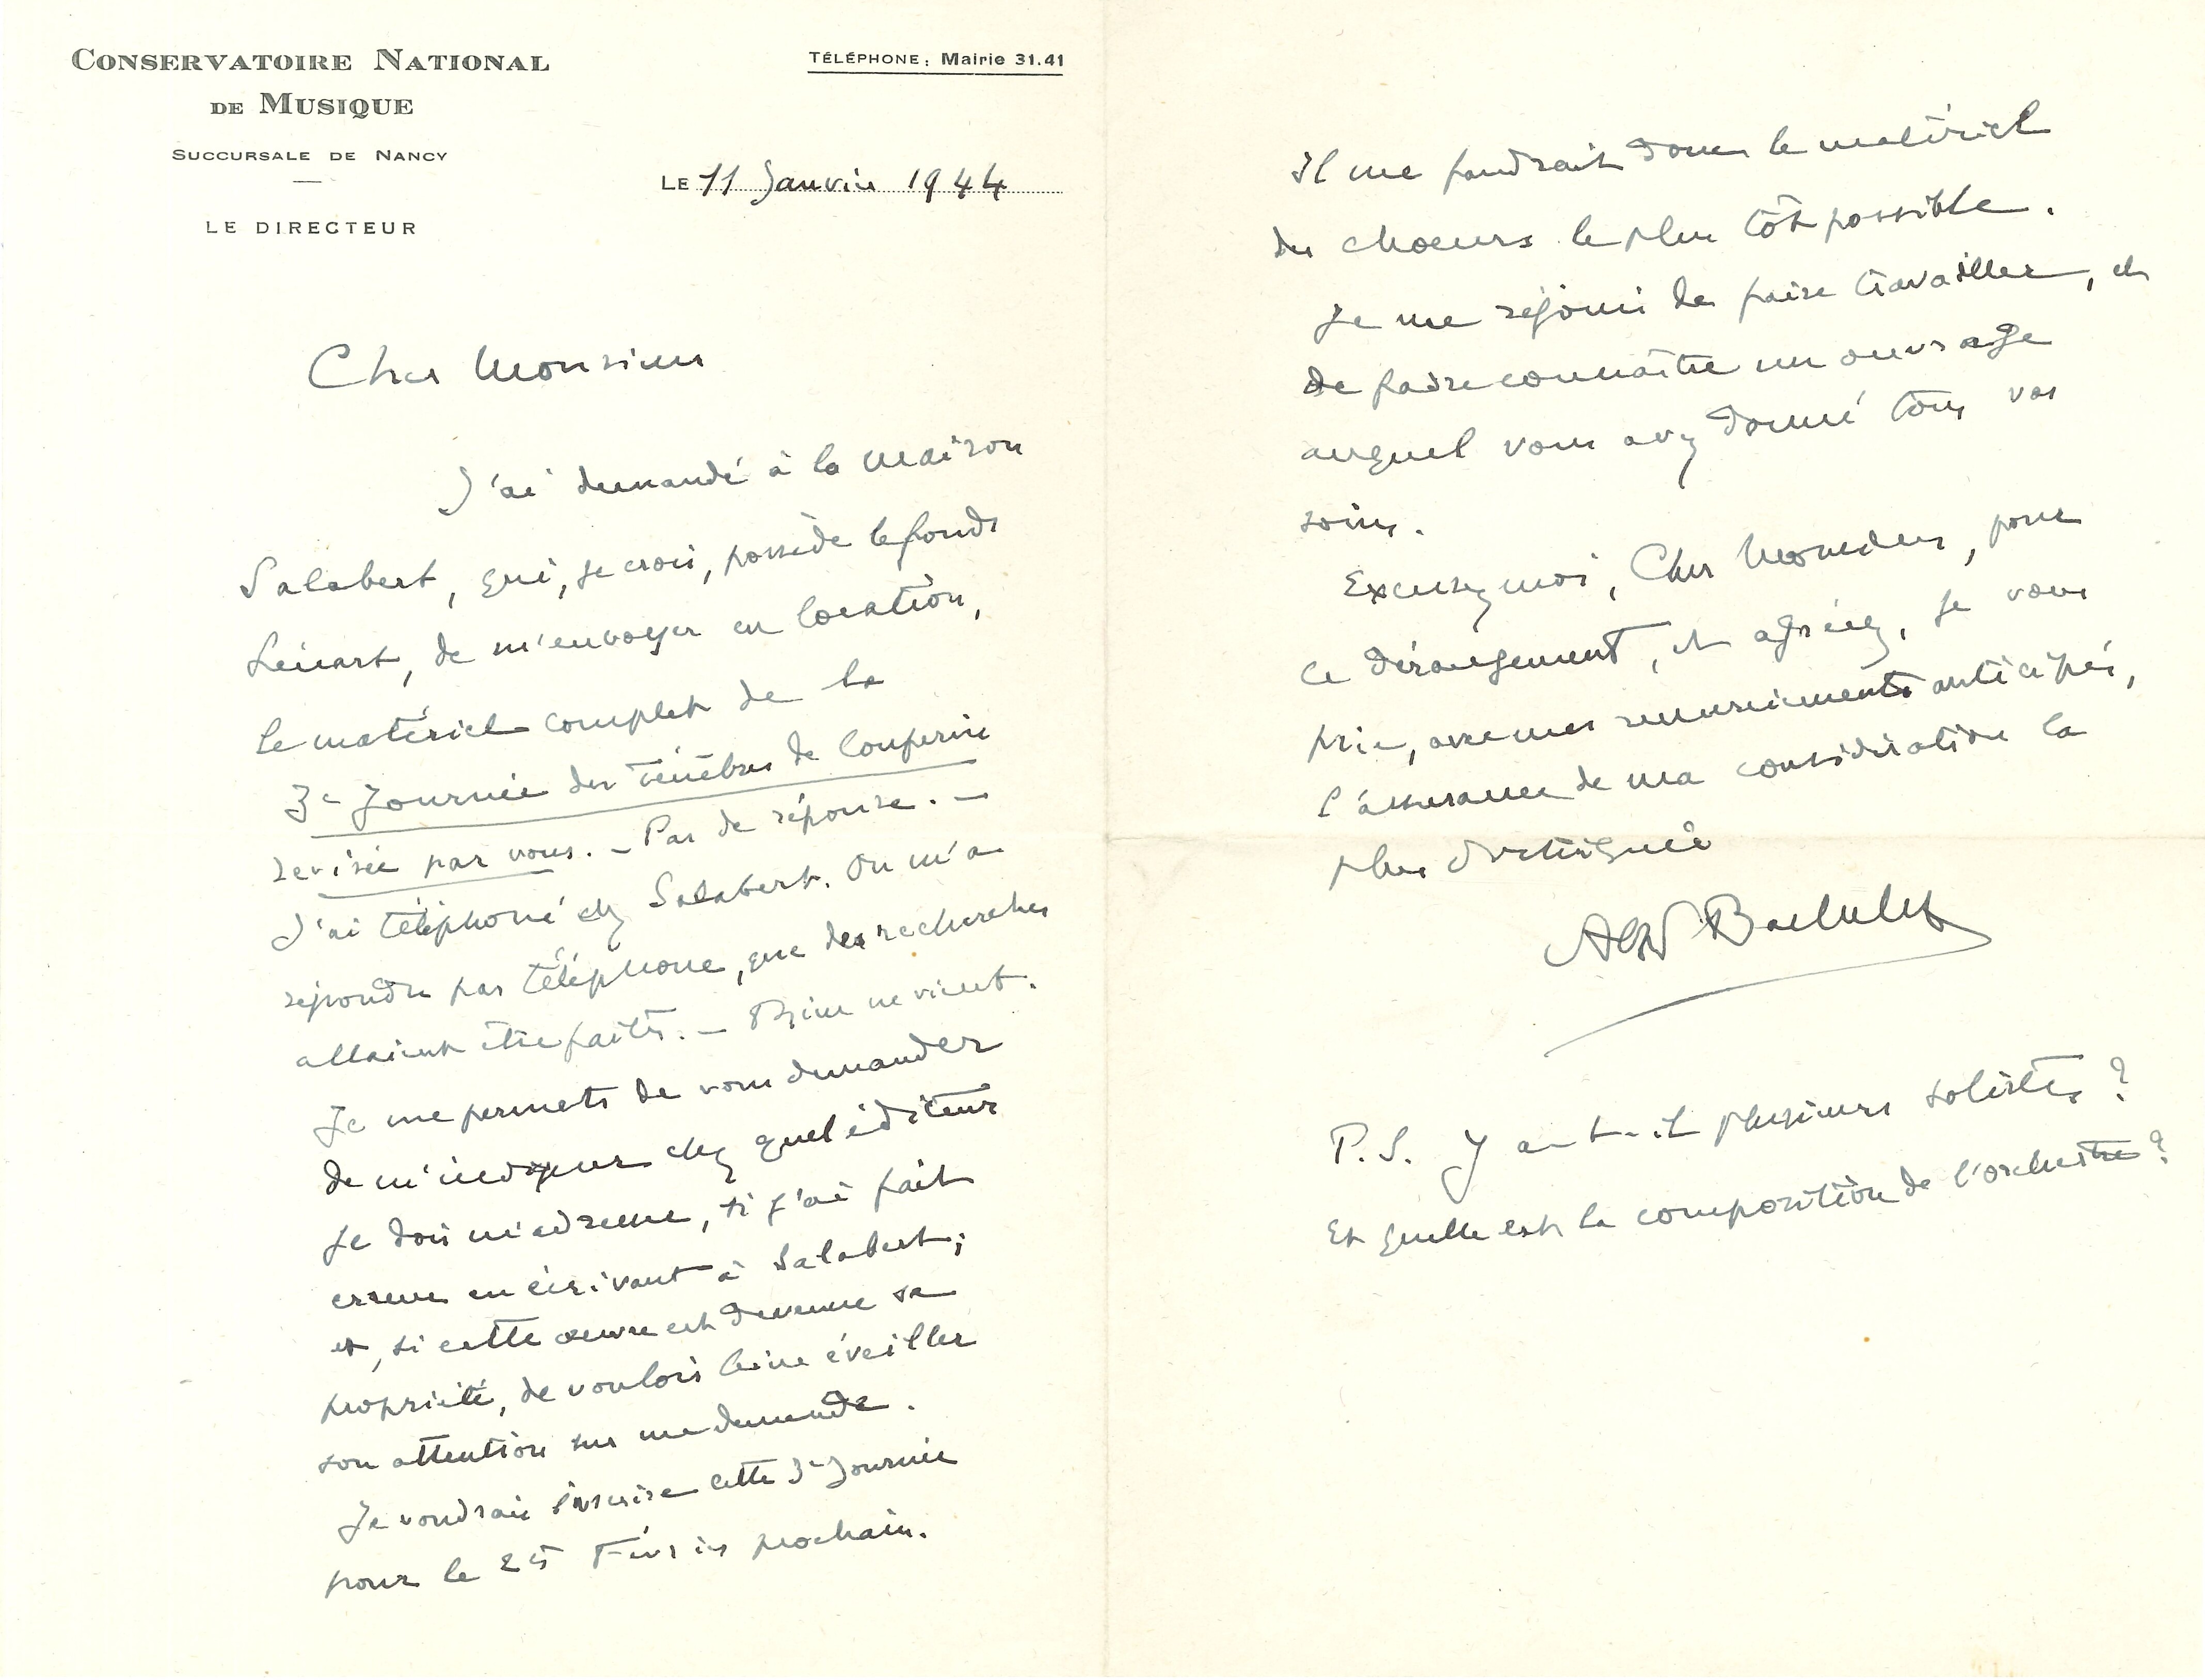 CONSERVATOIRE NATIONAL
DE MUSIQUE
SUCCURSALE DE NANCY
LE DIRECTEUR
TÉLÉPHONE : Mairie 31.41
LE 11 Janvier 1944
Cher Monsieur
J'ai demandé à la Maison
Salabert, qui, je crois, possède le fonds
Sénart, de m'envoyer en location,
le matériel complet de la
3e Journée des Ténèbres de Couperin
revisée par vous. – Pas de réponse. –
J'ai téléphoné chez Salabert. On m'a
répondu par téléphone, que des recherches
allaient être faites. – Rien ne vient.
Je me permets de vous demander
de m'indiquer chez quel éditeur
je dois m'adresser, si j'ai fait
erreur en écrivant à Salabert ;
et, si cette œuvre est devenue sa
propriété, de vouloir bien éveiller
son attention sur ma demande.
Je voudrais inscrire cette 3e Journée
pour le 25 Février prochain.
Il me faudrait donc le matériel
des chœurs le plus tôt possible.
Je me réjouis de faire travailler, et
de faire connaître un ouvrage
auquel vous avez donné tous vos
soins.
Excusez moi, Cher Monsieur, pour
ce dérangement, et agréez, je vous
prie, avec mes remerciements anticipés,
l'assurance de ma considération la
plus distinguée
Alfd Bachelet
P.S. Y a-t-il plusieurs solistes ?
Et quelle est la composition de l'orchestre ?